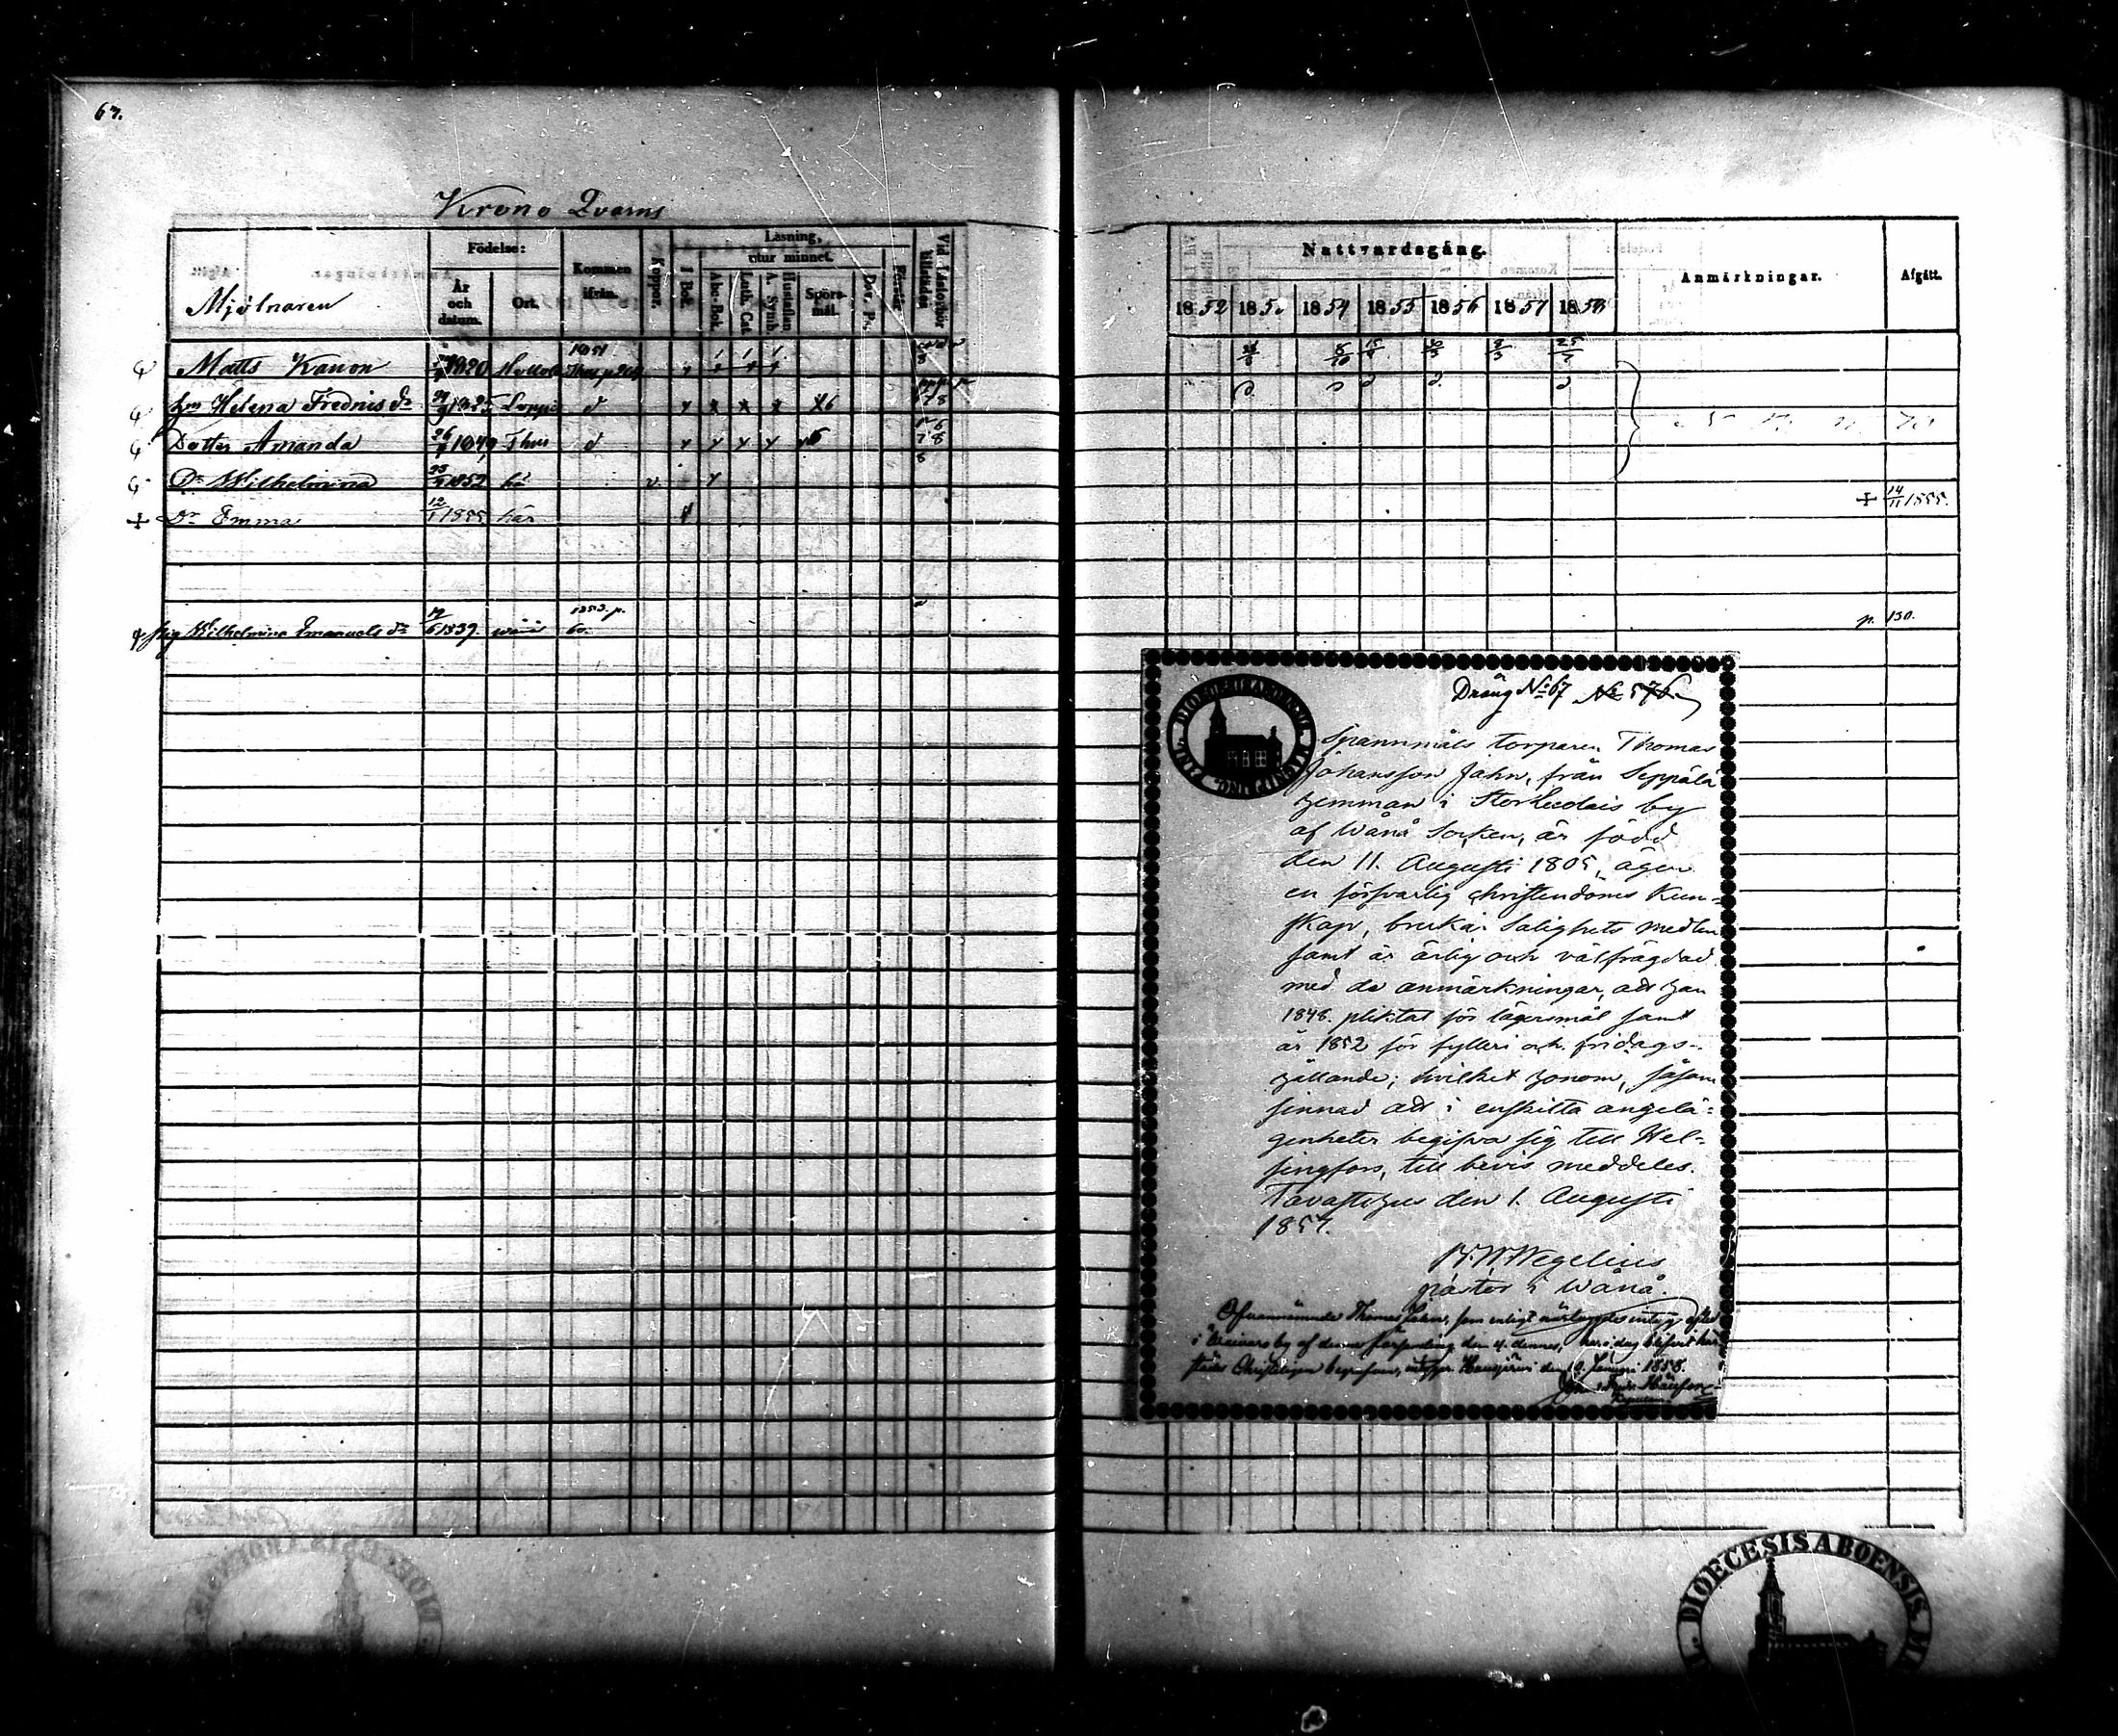 67.
Krono Qvarns
Mjölnaren
Födelse:
År och datum.
Ort.
Kommen ifrån.
Koppor.
Läsning,
I Bok.
utur minnet.
Abc-Bok.
Luth. Cat.
Hustaflan A. Symb.
Spörs-mål.
Dav. P.
Förstår
Vid Läseförhör tillstädes
Matts Kanon 1820 1851
Hu Helena Fredrics dr Loppis d
Dotter Amanda 1849 Thus d
Dr Wilhelmina 1852 här v.
Dr Emma 12/1 1855 här
Pig Wilhelmina Emanuels dr 17/6 1837. wånå 1853. p. 60.
Nattvardsgång.
Anmärkningar.
Afgått.
1852 185 1854 1855 1856 1857 1858
+ 14/11 1855.
p. 130.
DIOECESIS ABOENSIS
Dräng No 67 No 576.
Spannmåls torparen Thomas
Johansson Jahn, från Seppälä
hemman i Storhedois by
af Wånå Socken, är född
den 11. Augusti 1805, äger
en försvarlig christendoms kun-
skap, brukar Salighets medlen
samt är ärlig och välfrägdad
med de anmärkningar, att han
1848. pliktat för lägersmål samt
år 1852 för fylleri och fridags-
gällande; hvilket honom, såsom
sinnad att i enskilta angelä-
genheter begifva sig till Hel-
singfors, till bevis meddeles.
Tavastehus den 1. Augusti
1857.
Wegelius
pastor i Wånå.
Ofvannämnde Thomas Jahn, som enligt
i by af denna församling den 4. dennes, har i dag blifvit här-
städes Christeligen begrafven, intygar. Hausjärvi den 10. Januari 1858.
DIOECESIS ABOENSIS